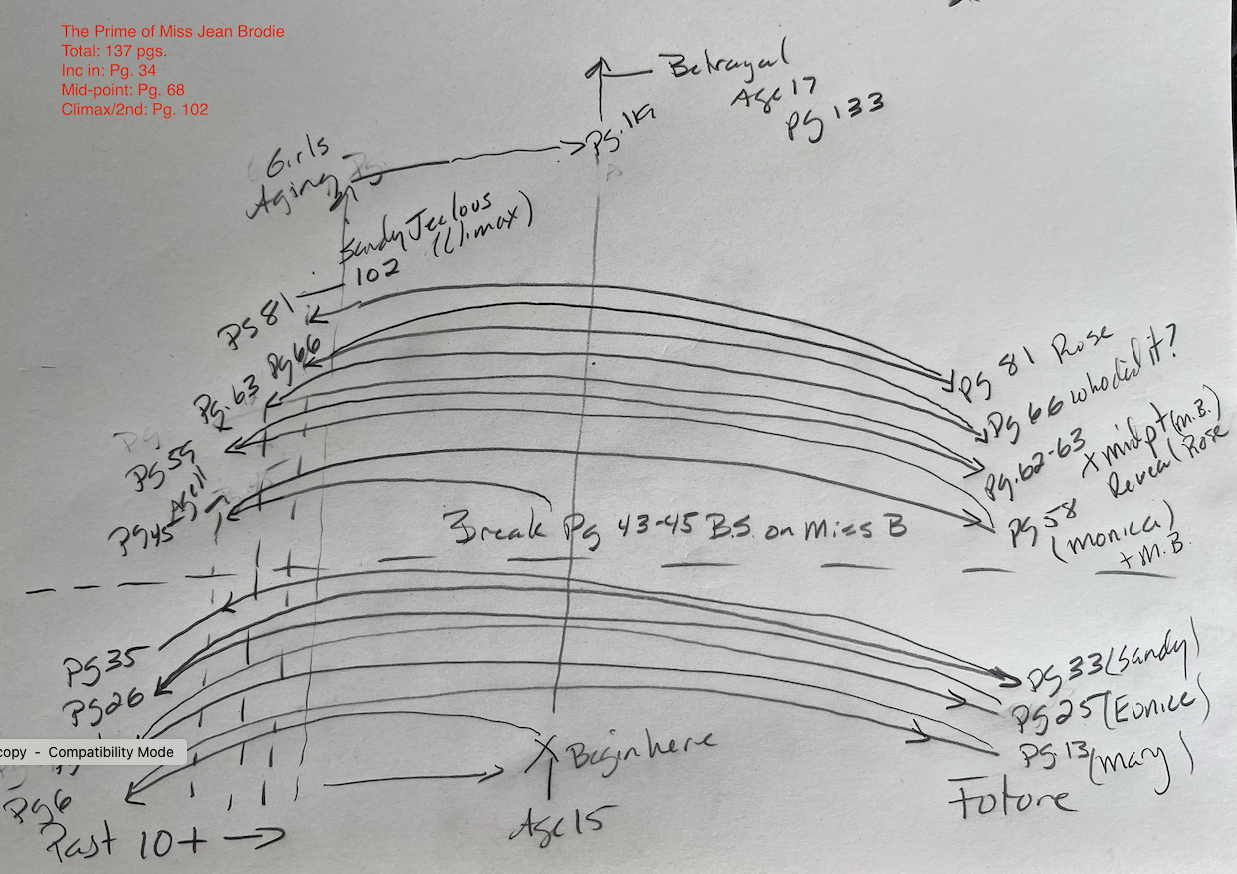 The Prime of Miss Jean Brodie
Total: 137 pgs.
Inc in: Pg. 34
Mid-point: Pg. 68
Climax/2nd: Pg. 102
Betrayal
Age 17
Pg 133
Girls
Aging
Sandy Jealous
(Climax)
102
Pg 81
Pg 66
Pg. 63
Pg 59
Age 11
Pg 45
Pg 81 Rose
Pg 66 who did it?
Pg. 62-63
X mid pt (M.B.)
Reveal Rose
Pg 58
(Monica)
+ M.B.
Break Pg 43-45 B.S. on Miss B
Pg 35
Pg 26
Pg 6
Past 10+
X Begin here
Age 15
Pg 33 (Sandy)
Pg 25 (Eunice)
Pg. 13 (Mary)
Future
copy - Compatibility Mode